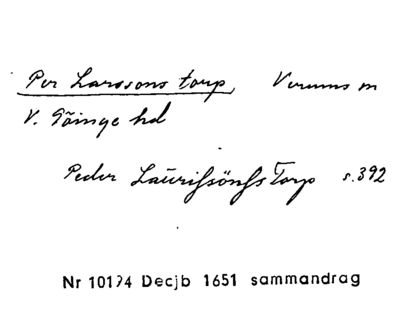 Per Larssons torp, Verums sn
V. Göinge hd
Peder Laürißönß Torp s. 392
Nr 10194 Decjb 1651 sammandrag